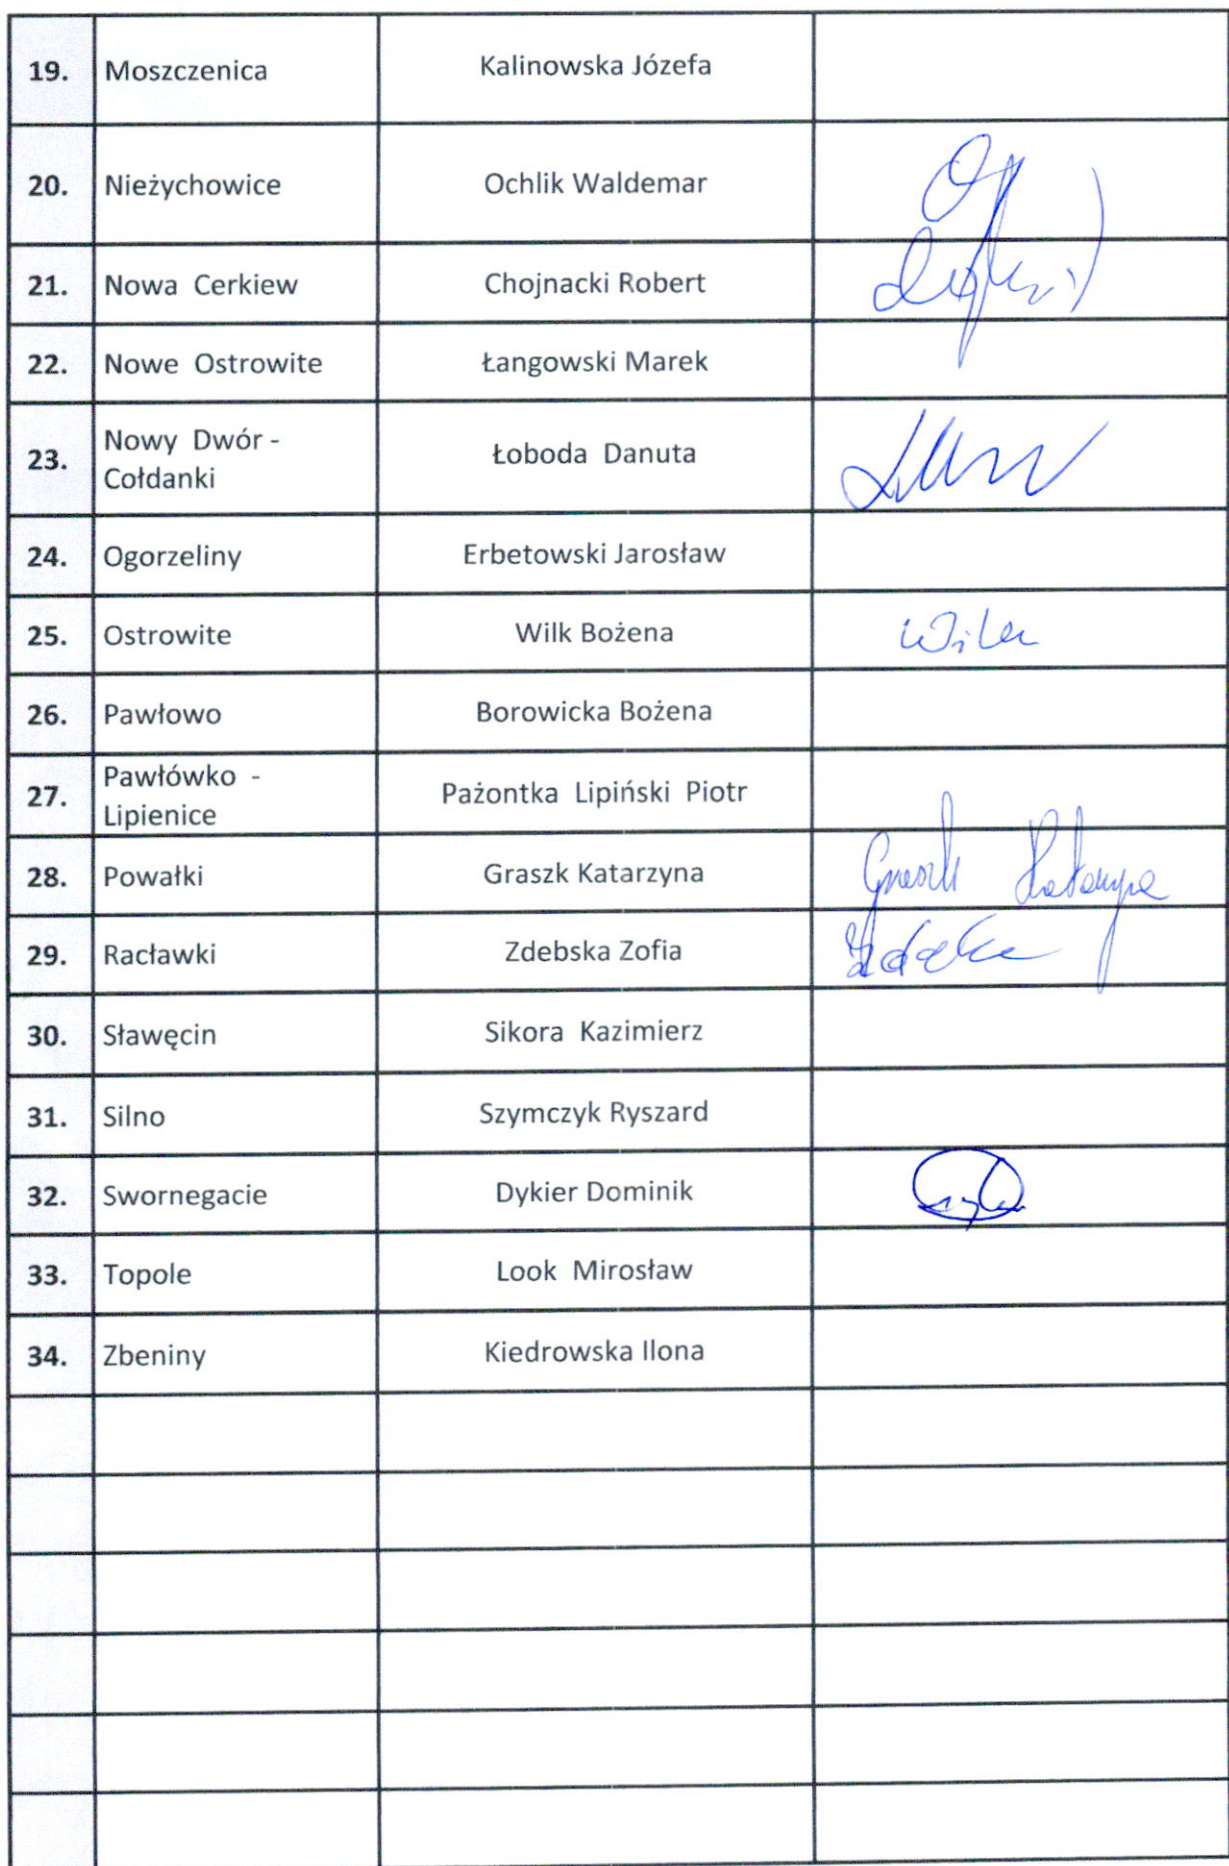 19. Moszczenica Kalinowska Józefa
20. Nieżychowice Ochlik Waldemar
21. Nowa Cerkiew Chojnacki Robert
22. Nowe Ostrowite Łangowski Marek
23. Nowy Dwór - Łoboda Danuta
Cołdanki
24. Ogorzeliny Erbetowski Jarosław
25. Ostrowite Wilk Bożena Wilk
26. Pawłowo Borowicka Bożena
27. Pawłówko - Pażontka Lipiński Piotr
Lipienice
28. Powałki Graszk Katarzyna Graszk Katarzyna
29. Racławki Zdebska Zofia
30. Sławęcin Sikora Kazimierz
31. Silno Szymczyk Ryszard
32. Swornegacie Dykier Dominik
33. Topole Look Mirosław
34. Zbeniny Kiedrowska Ilona